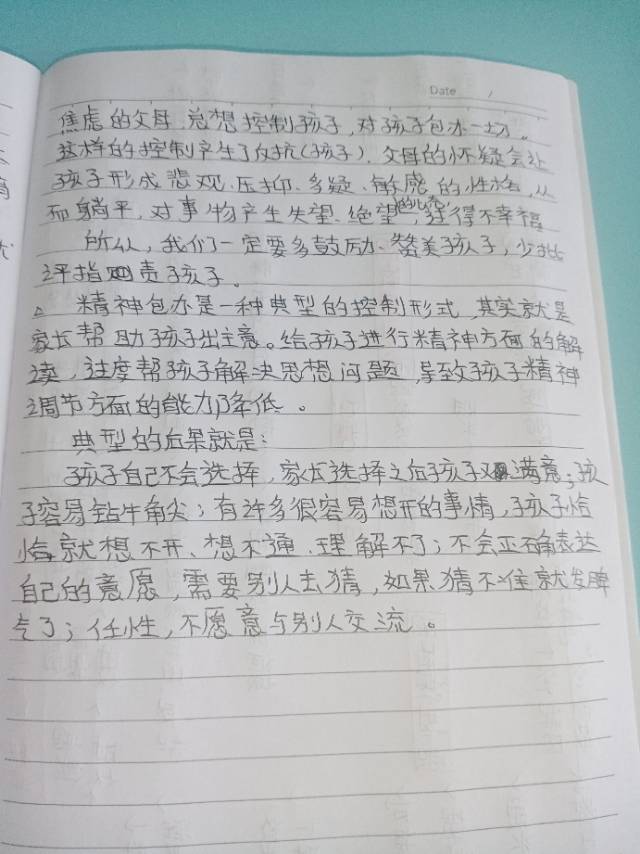 Date /
焦虑的父母总想控制孩子,对孩子包办一切。
这样的控制产生了反抗(孩子),父母的怀疑会让
孩子形成悲观、压抑、多疑、敏感的性格,从
而躺平,对事物产生失望、绝望的心态,过得不幸福
所以,我们一定要多鼓励、赞美孩子,少批
评指责孩子。
△ 精神包办是一种典型的控制形式,其实就是
家长帮助孩子出主意。给孩子进行精神方面的解
读,过度帮孩子解决思想问题,导致孩子精神
调节方面的能力降低。
典型的后果就是:
孩子自己不会选择,家长选择之后孩子又不满意;孩
子容易钻牛角尖;有许多很容易想开的事情,孩子恰
恰就想不开、想不通、理解不了;不会正确表达
自己的意愿,需要别人去猜,如果猜不准就发脾
气了;任性,不愿意与别人交流。